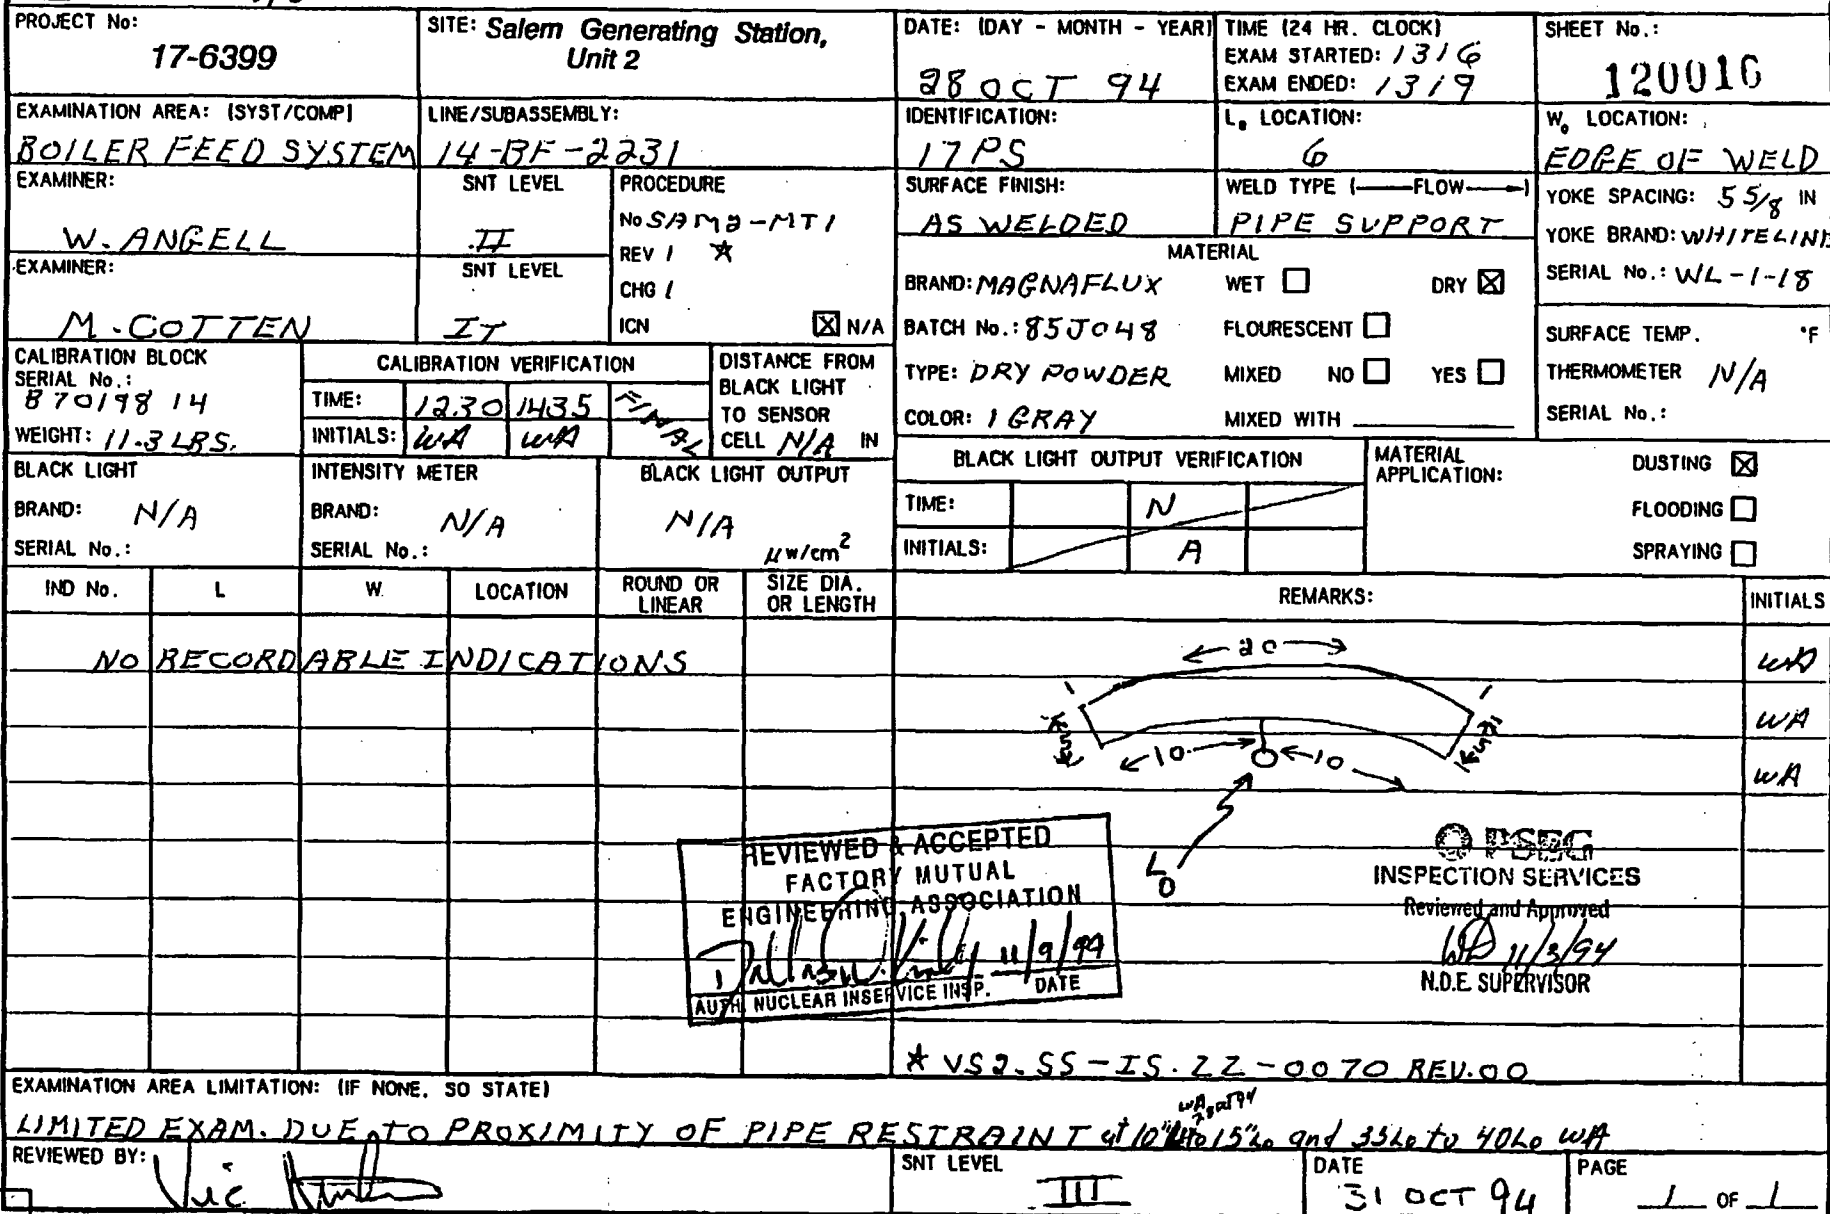 PROJECT No:
17-6399
SITE: Salem Generating Station,
Unit 2
DATE: (DAY - MONTH - YEAR)
28 OCT 94
TIME (24 HR. CLOCK)
EXAM STARTED: 1316
EXAM ENDED: 1319
SHEET No.:
120016
EXAMINATION AREA: (SYST/COMP)
BOILER FEED SYSTEM
LINE/SUBASSEMBLY:
14-BF-2231
IDENTIFICATION:
17PS
L₀ LOCATION:
6
W₀ LOCATION:
EDGE OF WELD
EXAMINER:
W. ANGELL
SNT LEVEL
II
PROCEDURE
No SAM2-MT1
REV 1 ☆
CHG 1
ICN ☒ N/A
SURFACE FINISH:
AS WELDED
WELD TYPE (——FLOW——→)
PIPE SUPPORT
YOKE SPACING: 5 5/8 IN
YOKE BRAND: WHITELINE
SERIAL No.: WL-1-18
EXAMINER:
M. COTTEN
SNT LEVEL
II
MATERIAL
BRAND: MAGNAFLUX WET ☐ DRY ☒
BATCH No.: 85J048 FLOURESCENT ☐
TYPE: DRY POWDER MIXED NO ☐ YES ☐
COLOR: 1 GRAY MIXED WITH
SURFACE TEMP. °F
THERMOMETER N/A
SERIAL No.:
CALIBRATION BLOCK
SERIAL No.:
B70198 14
WEIGHT: 11.3 LBS.
CALIBRATION VERIFICATION
TIME: 1230 1435 FINAL
INITIALS: WA WA
DISTANCE FROM
BLACK LIGHT
TO SENSOR
CELL N/A IN
BLACK LIGHT
BRAND: N/A
SERIAL No.:
INTENSITY METER
BRAND: N/A
SERIAL No.:
BLACK LIGHT OUTPUT
N/A
μw/cm²
BLACK LIGHT OUTPUT VERIFICATION
TIME: N
INITIALS: A
MATERIAL
APPLICATION:
DUSTING ☒
FLOODING ☐
SPRAYING ☐
IND No. L W. LOCATION ROUND OR LINEAR SIZE DIA. OR LENGTH REMARKS: INITIALS
NO RECORDABLE INDICATIONS
20
WA
WA
10 10
WA
L0
REVIEWED & ACCEPTED
FACTORY MUTUAL
ENGINEERING ASSOCIATION
11/9/94
AUTH. NUCLEAR INSERVICE INSP. DATE
PSEG
INSPECTION SERVICES
Reviewed and Approved
11/3/94
N.D.E. SUPERVISOR
☆ VS2.SS-IS.ZZ-0070 REV.00
EXAMINATION AREA LIMITATION: (IF NONE, SO STATE)
WA 28 oct 94
LIMITED EXAM. DUE TO PROXIMITY OF PIPE RESTRAINT at 10" to 15"Lo and 35Lo to 40Lo WA
REVIEWED BY:
Vic
SNT LEVEL
III
DATE
31 OCT 94
PAGE
1 OF 1